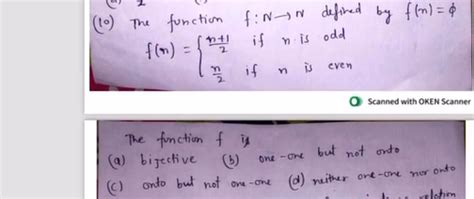 (10) The function f: N→N defined by f(n) = ϕ
f(n) = { n+1/2 if n is odd
n/2 if n is even
Scanned with OKEN Scanner
The function f is
(a) bijective (b) one-one but not onto
(c) onto but not one-one (d) neither one-one nor onto
relation